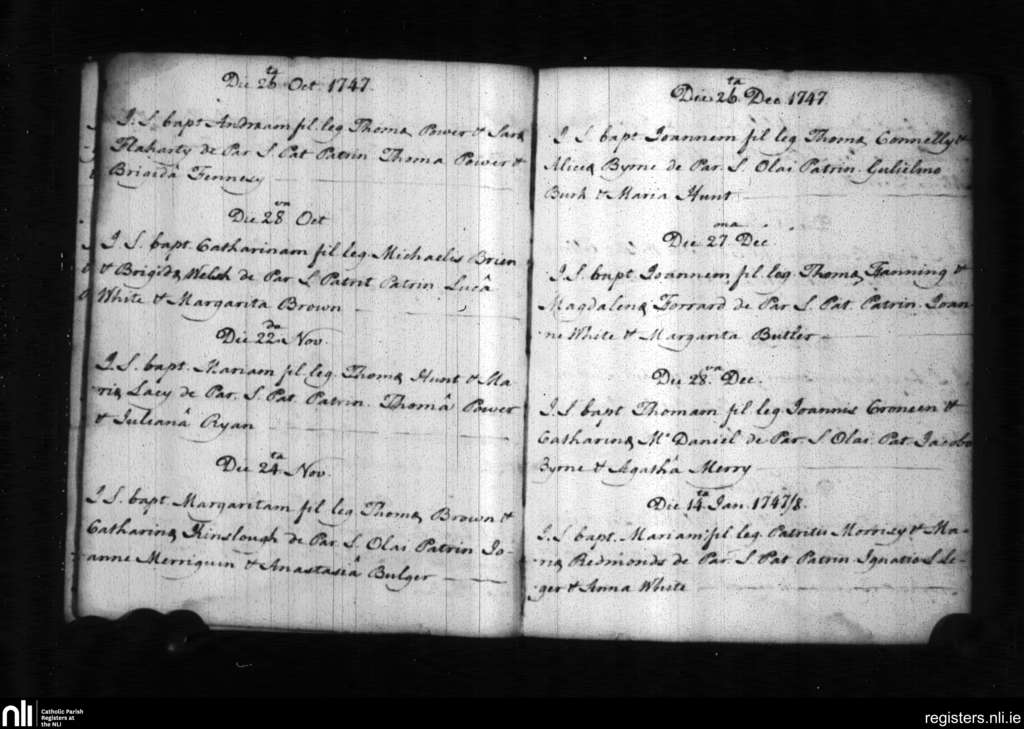 Die 26ta Oct 1747.
I. S. bapt Andream fil leg Thomæ Power & Saræ
Flaharty de Par S Pat Patrin Thoma Power &
Brigidâ Fennesy
Die 28va Oct
I S. bapt. Catharinam fil leg. Michaelis Brien
& Brigidæ Welsh de Par S Patrit Patrin Lucâ
White & Margarita Brown
Die 22da Nov.
I S. bapt. Mariam fil leg. Thomæ Hunt & Ma-
riæ Lacy de Par. S Pat. Patrin. Thomâ Power
& Julianâ Ryan
Die 24ta Nov.
I S. bapt. Margaritam fil leg Thomæ Brown &
Catharinæ Kinslough de Par S. Olai Patrin Jo-
anne Merriguin & Anastasiâ Bulger
Die 26ta Dec 1747
I S bapt Joannem fil leg Thomæ Connelly &
Aliciæ Byrne de Par. S. Olai Patrin. Gulielmo
Burk & Maria Hunt
Die 27ma Dec
I S. bapt. Joannem fil leg. Thomæ Fanning &
Magdalenæ Forrard de Par S. Pat. Patrin. Joan-
ne White & Margarita Butler
Die 28va Dec.
I. S bapt Thomam fil leg Joannis Croneen &
Catharinæ Mc Daniel de Par. S Olai Pat. Jacobo
Byrne & Agathâ Merry
Die 14ta Jan. 1747/8.
I. S. bapt. Mariam fil leg. Patritii Morrisy & Ma-
riæ Redmonds de Par. S Pat Patrin Ignatio S Le-
ger & Anna White
nli
Catholic Parish
Registers at
the NLI
registers.nli.ie